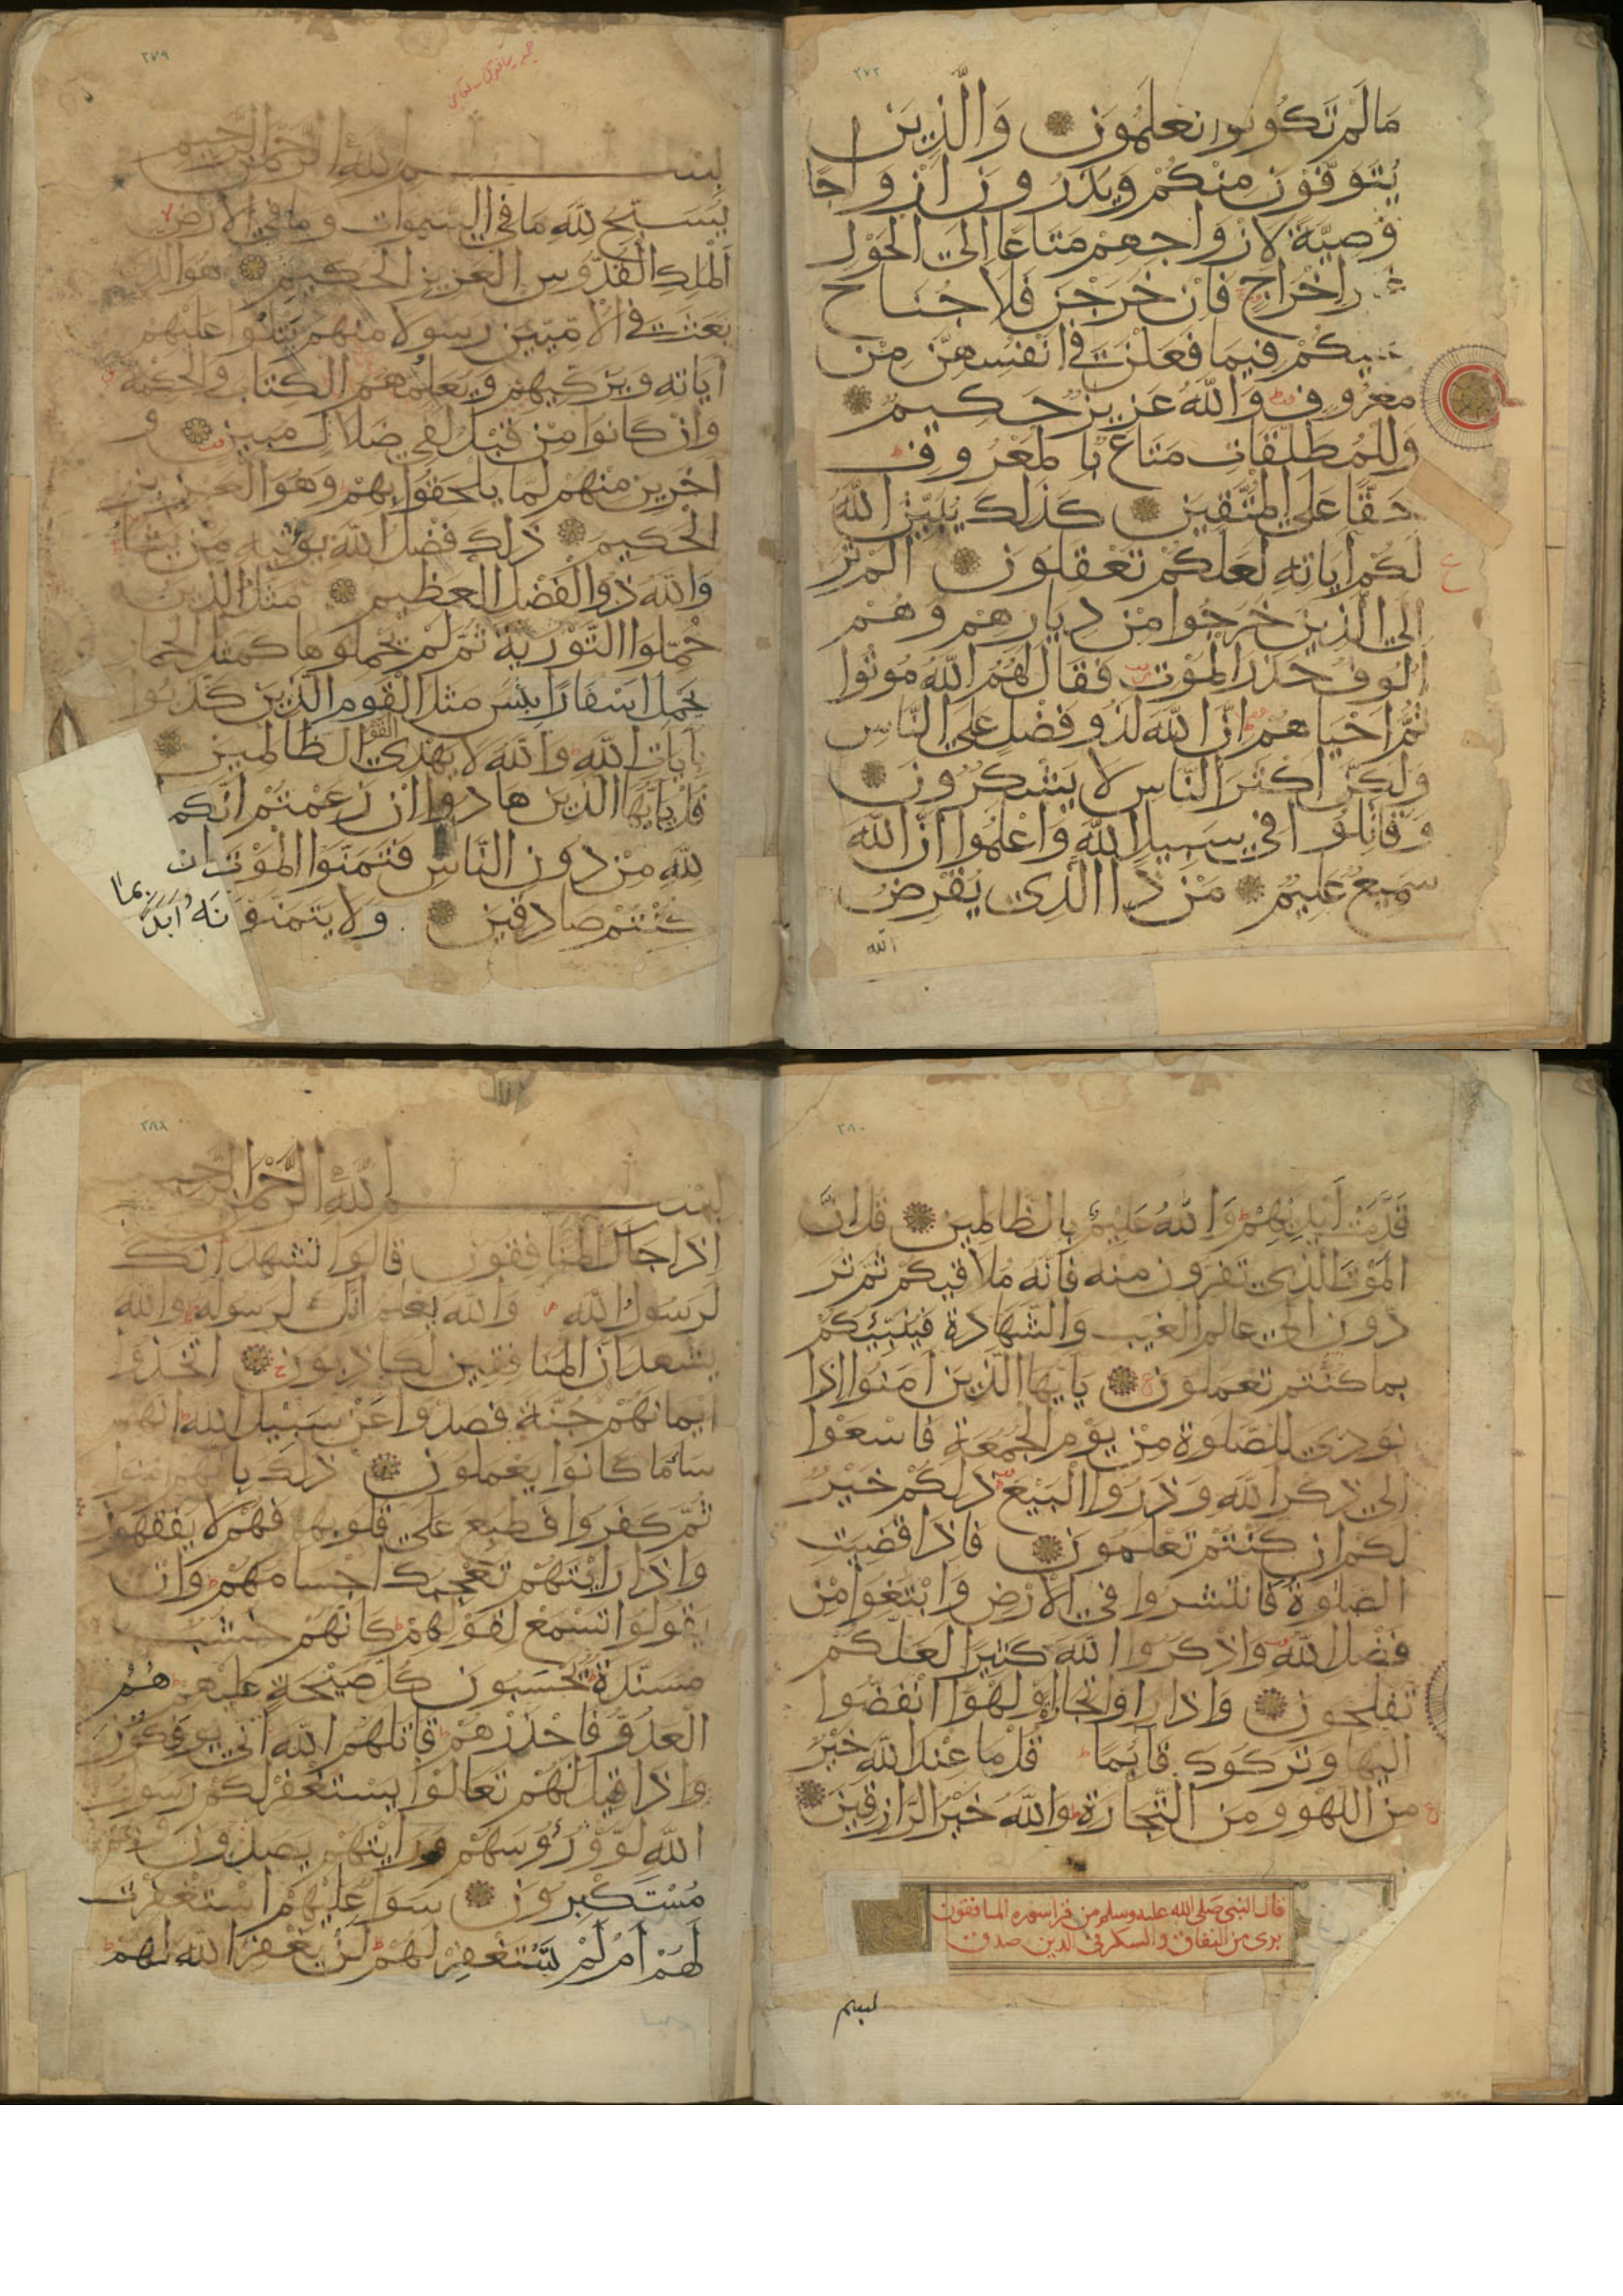 ٢٧٢
مَا لَمْ تَكُونُوا تَعْلَمُونَ وَالَّذِينَ
يُتَوَفَّوْنَ مِنْكُمْ وَيَذَرُونَ أَزْوَاجًا
وَصِيَّةً لِأَزْوَاجِهِمْ مَتَاعًا إِلَى الْحَوْلِ
غَيْرَ إِخْرَاجٍ فَإِنْ خَرَجْنَ فَلَا جُنَاحَ
عَلَيْكُمْ فِيمَا فَعَلْنَ فِي أَنْفُسِهِنَّ مِنْ
مَعْرُوفٍ وَاللَّهُ عَزِيزٌ حَكِيمٌ
وَلِلْمُطَلَّقَاتِ مَتَاعٌ بِالْمَعْرُوفِ
حَقًّا عَلَى الْمُتَّقِينَ كَذَلِكَ يُبَيِّنُ اللَّهُ
لَكُمْ آيَاتِهِ لَعَلَّكُمْ تَعْقِلُونَ أَلَمْ تَرَ
إِلَى الَّذِينَ خَرَجُوا مِنْ دِيَارِهِمْ وَهُمْ
أُلُوفٌ حَذَرَ الْمَوْتِ فَقَالَ لَهُمُ اللَّهُ مُوتُوا
ثُمَّ أَحْيَاهُمْ إِنَّ اللَّهَ لَذُو فَضْلٍ عَلَى النَّاسِ
وَلَكِنَّ أَكْثَرَ النَّاسِ لَا يَشْكُرُونَ
وَقَاتِلُوا فِي سَبِيلِ اللَّهِ وَاعْلَمُوا أَنَّ اللَّهَ
سَمِيعٌ عَلِيمٌ مَنْ ذَا الَّذِي يُقْرِضُ
الله
٢٧٩
بِسْمِ اللَّهِ الرَّحْمَنِ الرَّحِيمِ
يُسَبِّحُ لِلَّهِ مَا فِي السَّمَوَاتِ وَمَا فِي الْأَرْضِ
الْمَلِكِ الْقُدُّوسِ الْعَزِيزِ الْحَكِيمِ هُوَ الَّذِي
بَعَثَ فِي الْأُمِّيِّينَ رَسُولًا مِنْهُمْ يَتْلُوا عَلَيْهِمْ
آيَاتِهِ وَيُزَكِّيهِمْ وَيُعَلِّمُهُمُ الْكِتَابَ وَالْحِكْمَةَ
وَإِنْ كَانُوا مِنْ قَبْلُ لَفِي ضَلَالٍ مُبِينٍ و
آخَرِينَ مِنْهُمْ لَمَّا يَلْحَقُوا بِهِمْ وَهُوَ الْعَزِيزُ
الْحَكِيمُ ذَلِكَ فَضْلُ اللَّهِ يُؤْتِيهِ مَنْ يَشَاءُ
وَاللَّهُ ذُو الْفَضْلِ الْعَظِيمِ مَثَلُ الَّذِينَ
حُمِّلُوا التَّوْرَيةَ ثُمَّ لَمْ يَحْمِلُوهَا كَمَثَلِ الْحِمَارِ
يَحْمِلُ أَسْفَارًا بِئْسَ مَثَلُ الْقَوْمِ الَّذِينَ كَذَّبُوا
بِآيَاتِ اللَّهِ وَاللَّهُ لَا يَهْدِي الْقَوْمَ الظَّالِمِينَ
قُلْ يَا أَيُّهَا الَّذِينَ هَادُوا إِنْ زَعَمْتُمْ أَنَّكُمْ
لِلَّهِ مِنْ دُونِ النَّاسِ فَتَمَنَّوُا الْمَوْتَ إِنْ
كُنْتُمْ صَادِقِينَ وَلَا يَتَمَنَّوْنَهُ أَبَدًا بِمَا
٢٨٠
قَدَّمَتْ أَيْدِيهِمْ وَاللَّهُ عَلِيمٌ بِالظَّالِمِينَ قُلْ إِنَّ
الْمَوْتَ الَّذِي تَفِرُّونَ مِنْهُ فَإِنَّهُ مُلَاقِيكُمْ ثُمَّ تُرَ
دُّونَ إِلَى عَالِمِ الْغَيْبِ وَالشَّهَادَةِ فَيُنَبِّئُكُمْ
بِمَا كُنْتُمْ تَعْمَلُونَ يَا أَيُّهَا الَّذِينَ آمَنُوا إِذَا
نُودِيَ لِلصَّلَوةِ مِنْ يَوْمِ الْجُمُعَةِ فَاسْعَوْا
إِلَى ذِكْرِ اللَّهِ وَذَرُوا الْبَيْعَ ذَلِكُمْ خَيْرٌ
لَكُمْ إِنْ كُنْتُمْ تَعْلَمُونَ فَإِذَا قُضِيَتِ
الصَّلَوةُ فَانْتَشِرُوا فِي الْأَرْضِ وَابْتَغُوا مِنْ
فَضْلِ اللَّهِ وَاذْكُرُوا اللَّهَ كَثِيرًا لَعَلَّكُمْ
تُفْلِحُونَ وَإِذَا رَأَوْا تِجَارَةً أَوْ لَهْوًا انْفَضُّوا
إِلَيْهَا وَتَرَكُوكَ قَائِمًا قُلْ مَا عِنْدَ اللَّهِ خَيْرٌ
مِنَ اللَّهْوِ وَمِنَ التِّجَارَةِ وَاللَّهُ خَيْرُ الرَّازِقِينَ
قال النبى صلى الله عليه وسلم من قرا سوره المنافقون
برى من النفاق و السكر فى الدين صدق
٢٨٨
بِسْمِ اللَّهِ الرَّحْمَنِ الرَّحِيمِ
إِذَا جَاءَكَ الْمُنَافِقُونَ قَالُوا نَشْهَدُ إِنَّكَ
لَرَسُولُ اللَّهِ وَاللَّهُ يَعْلَمُ إِنَّكَ لَرَسُولُهُ وَاللَّهُ
يَشْهَدُ إِنَّ الْمُنَافِقِينَ لَكَاذِبُونَ اتَّخَذُوا
أَيْمَانَهُمْ جُنَّةً فَصَدُّوا عَنْ سَبِيلِ اللَّهِ إِنَّهُمْ
سَاءَ مَا كَانُوا يَعْمَلُونَ ذَلِكَ بِأَنَّهُمْ آمَنُوا
ثُمَّ كَفَرُوا فَطُبِعَ عَلَى قُلُوبِهِمْ فَهُمْ لَا يَفْقَهُونَ
وَإِذَا رَأَيْتَهُمْ تُعْجِبُكَ أَجْسَامُهُمْ وَإِنْ
يَقُولُوا تَسْمَعْ لِقَوْلِهِمْ كَأَنَّهُمْ خُشُبٌ
مُسَنَّدَةٌ يَحْسَبُونَ كُلَّ صَيْحَةٍ عَلَيْهِمْ هُمُ
الْعَدُوُّ فَاحْذَرْهُمْ قَاتَلَهُمُ اللَّهُ أَنَّى يُؤْفَكُونَ
وَإِذَا قِيلَ لَهُمْ تَعَالَوْا يَسْتَغْفِرْ لَكُمْ رَسُولُ
اللَّهِ لَوَّوْا رُؤُوسَهُمْ وَرَأَيْتَهُمْ يَصُدُّونَ وَهُمْ
مُسْتَكْبِرُونَ سَوَاءٌ عَلَيْهِمْ أَسْتَغْفَرْتَ
لَهُمْ أَمْ لَمْ تَسْتَغْفِرْ لَهُمْ لَنْ يَغْفِرَ اللَّهُ لَهُمْ